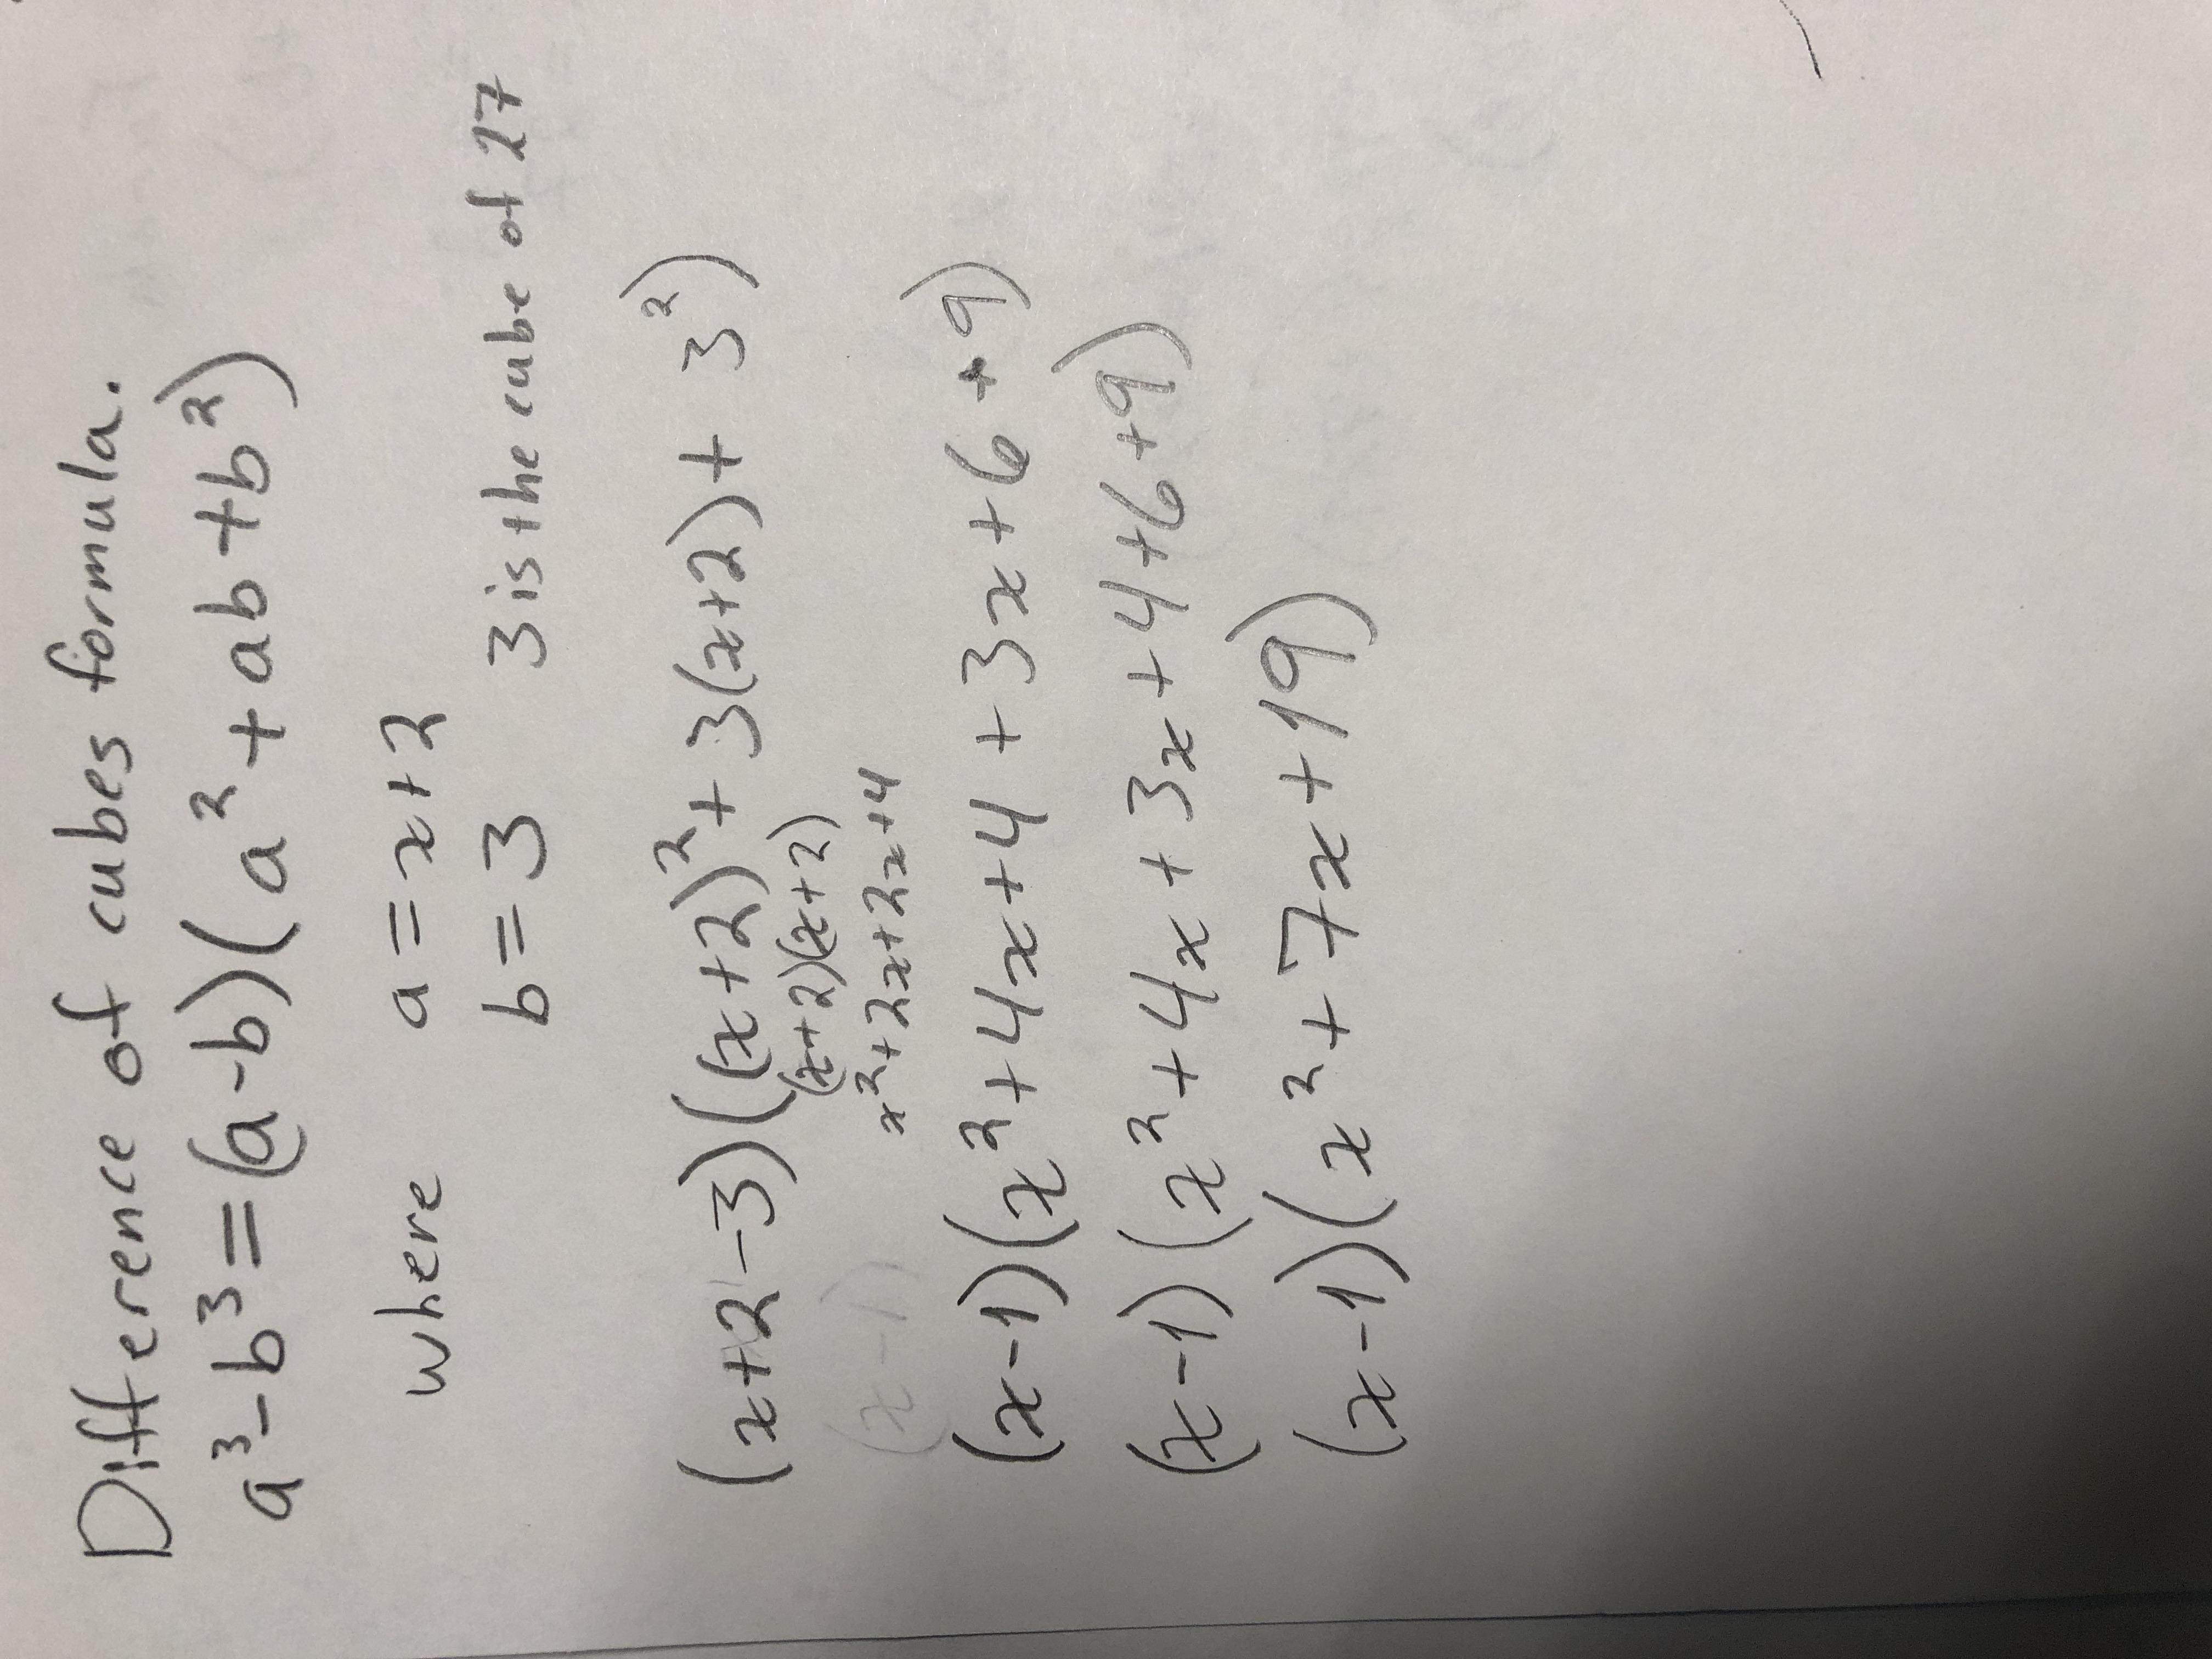 Difference of cubes formula.
a³-b³=(a-b)(a²+ab+b²)
where a=x+2
b=3 3 is the cube of 27
(x+2-3)((x+2)²+3(x+2)+3²)
(x+2)(x+2)
(x-1) x²+2x+2x+4
(x-1)(x²+4x+4+3x+6+9)
(x-1)(x²+4x+3x+4+6+9)
(x-1)(x²+7x+19)